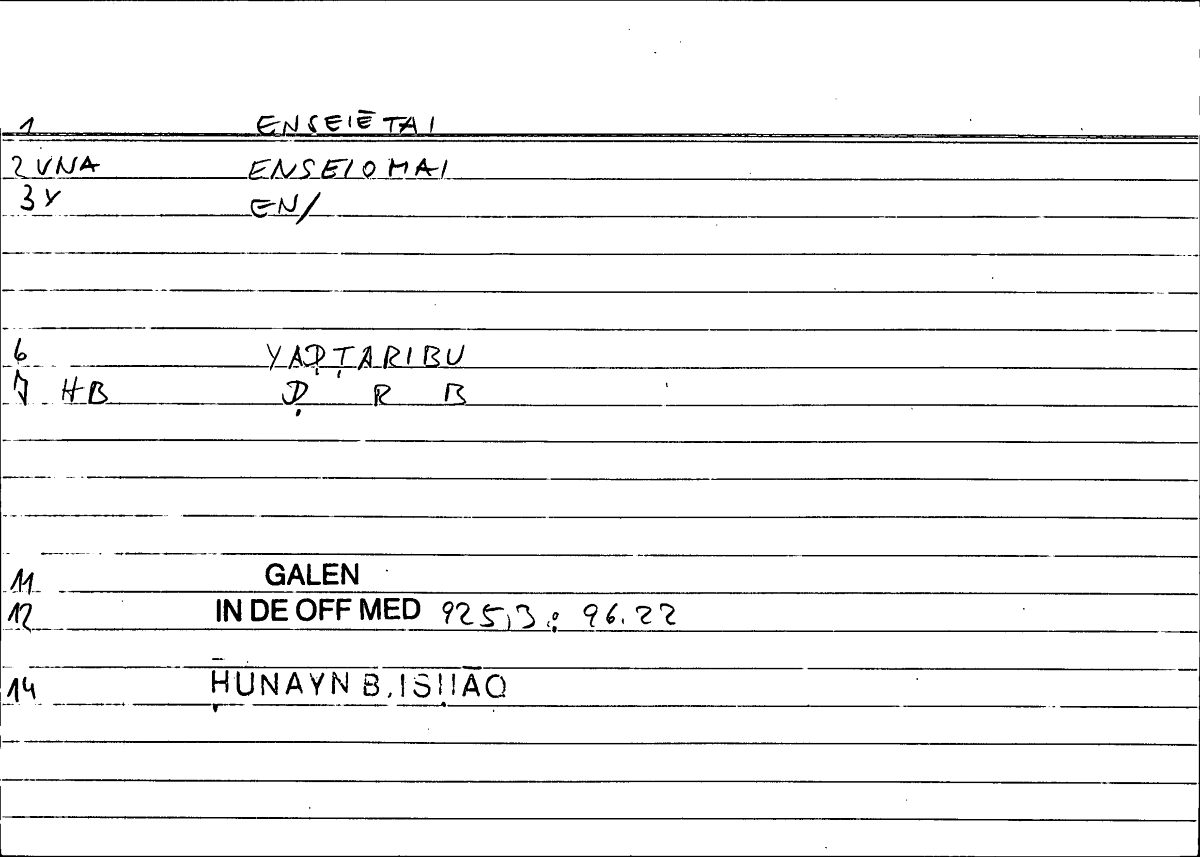 1 ENSEIĒTAI
2 VNA ENSEIOMAI
3 Y EN/
6 YAḌṬARIBU
7 HB Ḍ R B
11 GALEN
12 IN DE OFF MED 925,3 : 96.22
14 ḤUNAYN B. ISḤĀQ